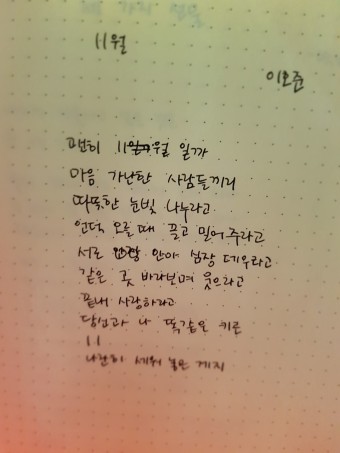 11월
이호준
괜히 11월 일까
마음 가난한 사람들끼리
따뜻한 눈빛 나누라고
언덕 오를 때 끌고 밀어주라고
서로 안아 심장 데우라고
같은 곳 바라보며 웃으라고
끝내 사랑하라고
당신과 나 똑같은 키로
11
나란히 세워 놓은 게지